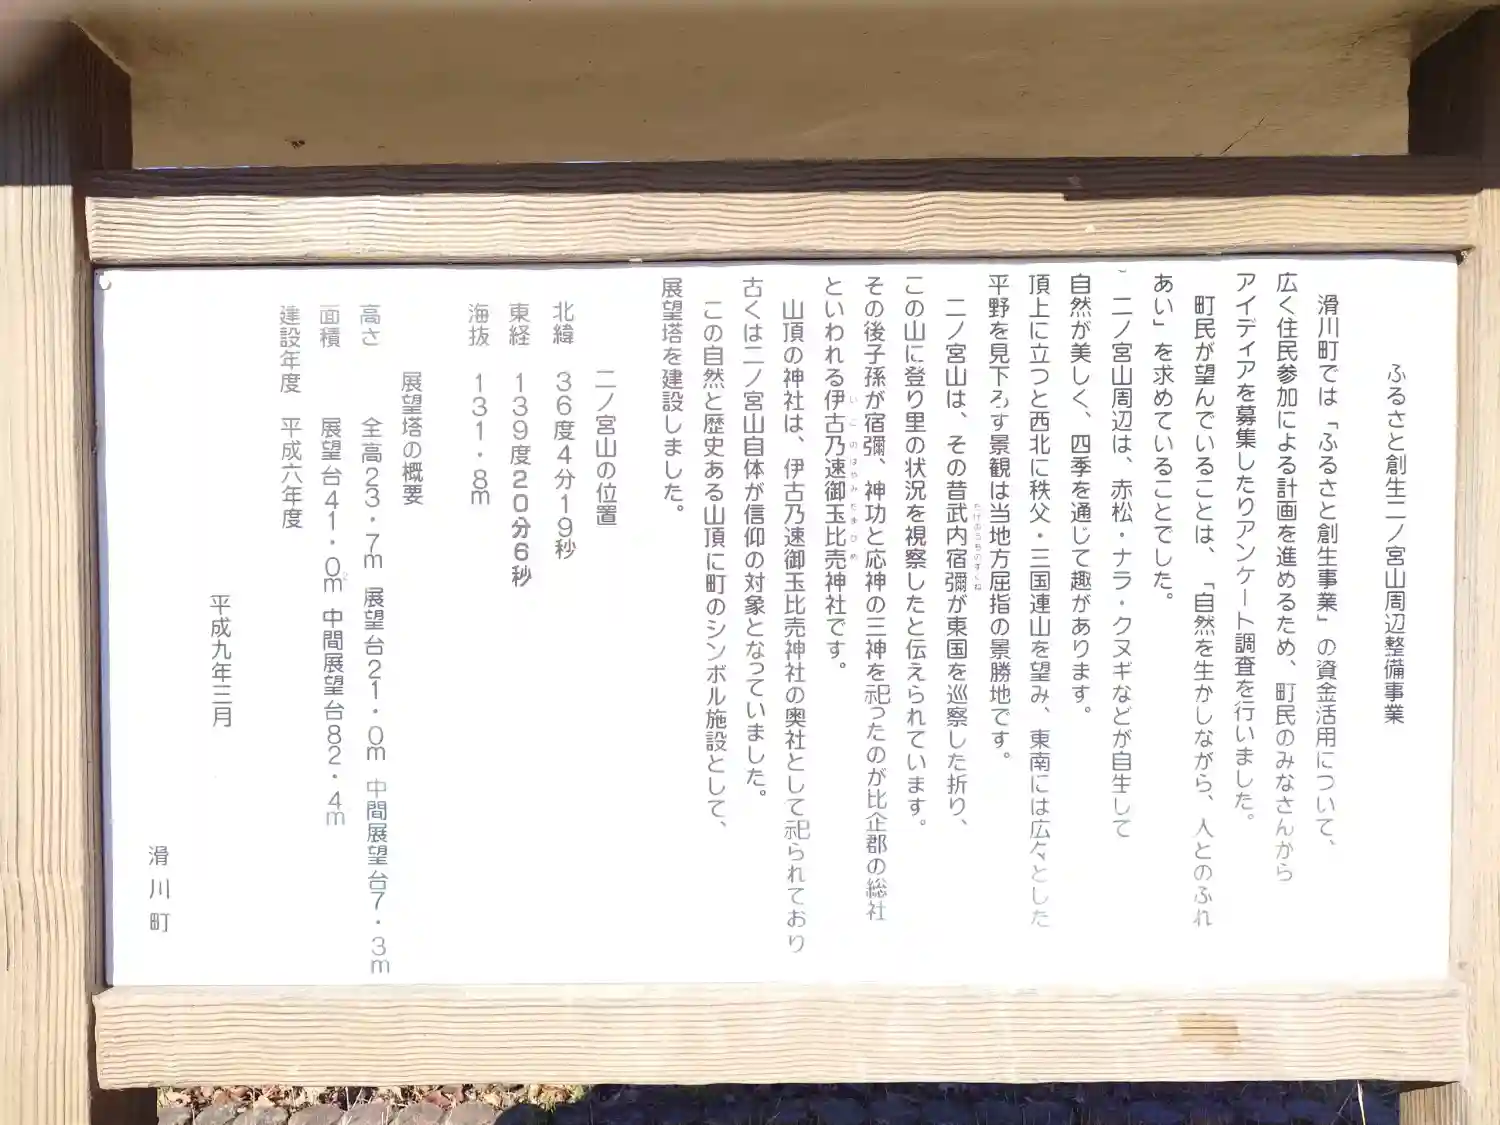 ふるさと創生二ノ宮山周辺整備事業
滑川町では「ふるさと創生事業」の資金活用について、
広く住民参加による計画を進めるため、町民のみなさんから
アイディアを募集したりアンケート調査を行いました。
町民が望んでいることは、「自然を生かしながら、人とのふれ
あい」を求めていることでした。
二ノ宮山周辺は、赤松・ナラ・クヌギなどが自生して
自然が美しく、四季を通じて趣があります。
頂上に立つと西北に秩父・三国連山を望み、東南には広々とした
平野を見下ろす景観は当地方屈指の景勝地です。
二ノ宮山は、その昔武内宿彌が東国を巡察した折り、
たけのうちのすくね
この山に登り里の状況を視察したと伝えられています。
その後子孫が宿彌、神功と応神の三神を祀ったのが比企郡の総社
といわれる伊古乃速御玉比売神社です。
いこのはやみたまひめ
山頂の神社は、伊古乃速御玉比売神社の奥社として祀られており
古くは二ノ宮山自体が信仰の対象となっていました。
この自然と歴史ある山頂に町のシンボル施設として、
展望塔を建設しました。
二ノ宮山の位置
北緯 36度4分19秒
東経 139度20分6秒
海抜 131・8m
展望塔の概要
高さ 全高23・7m 展望台21・0m 中間展望台7・3m
面積 展望台41・0m² 中間展望台82・4m
建設年度 平成六年度
平成九年三月
滑川町